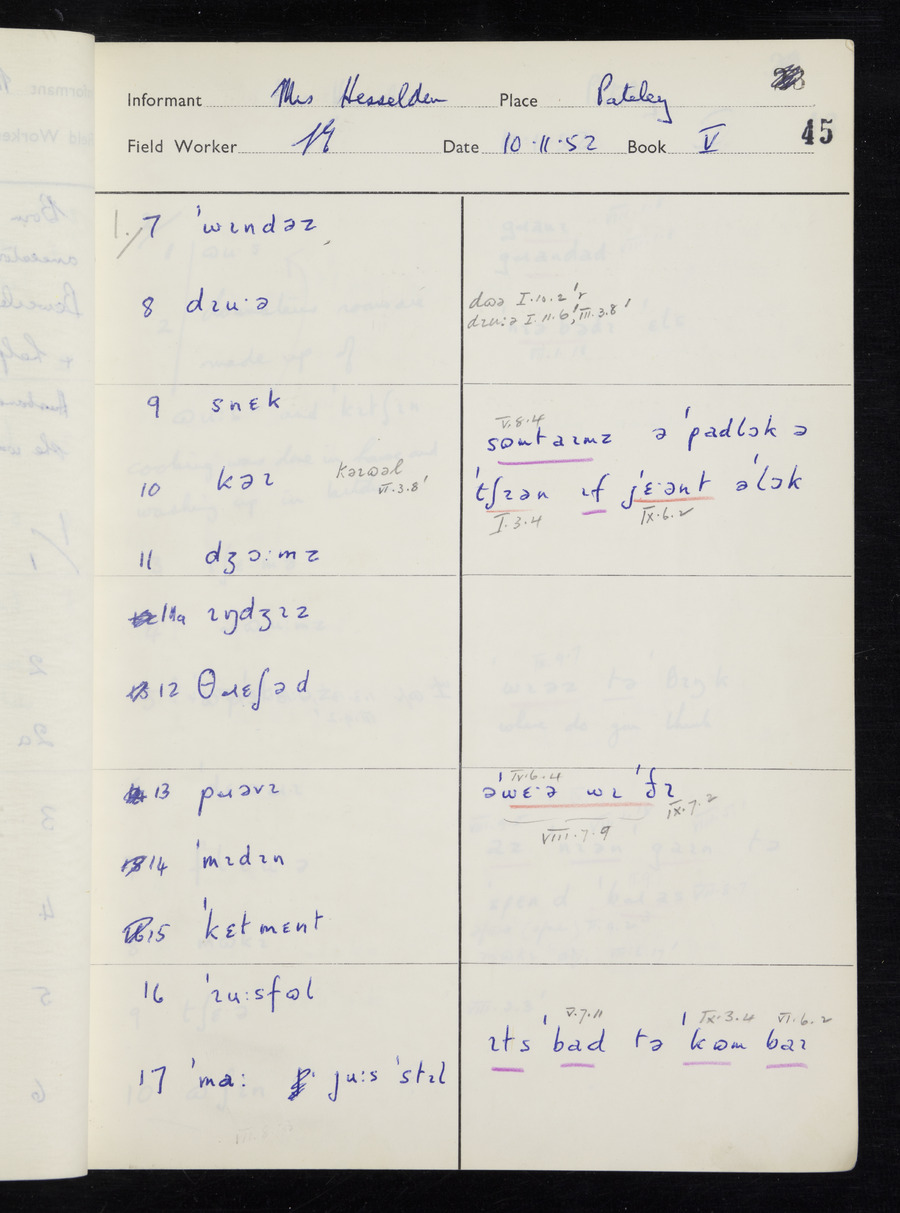 Informant Mrs Hesselden Place Pateley
45
Field Worker Date 10·11·52 Book V
1. 7 ˈwɪndəz
8 dɪu·ə
dʊə I.10.2'r
dɪu:ə I.11.6', III.3.8'
9 snɛk
V.8.4
sʊmtaɪmz ə ˈpadlɔk ə
10 kəɪ kəɪʊəl
VI.3.8'
ˈtʃɪən ɪf jˈɛ·ənt əˈlɔk
I.3.4 IX.6.2
11 dʒɔ:mz
11a ɪŋdʒɪz
12 θɹɛʃəd
IV.6.4
13 pɹəvɪ əˈwɛ·ə wɪ ˈðɪ
IX.7.2
VIII.7.9
14 ˈmɪdɪn
15 ˈkɛtmɛnt
16 ˈɪu:sfʊl
V.7.11 IX.3.4 VI.6.2
ɪts ˈbad tə ˈkʊm baɪ
17 ˈma: ju:s ˈstɪl